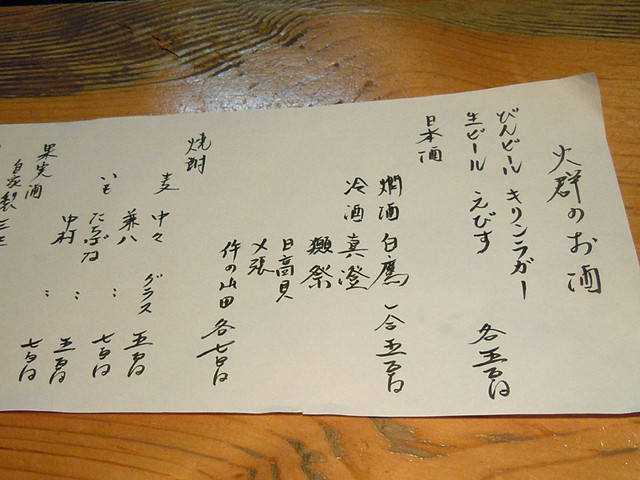 火群のお酒
びんビール キリンラガー
生ビール えびす 各五百円
日本酒
燗酒 白鷹 一合五百円
冷酒 真澄
獺祭
日高見
〆張
件の山田 各七百円
焼酎
麦 中々 グラス 五百円
兼八 〃 七百円
いも たちばな 〃 五百円
中村 〃 七百円
果実酒
自家製